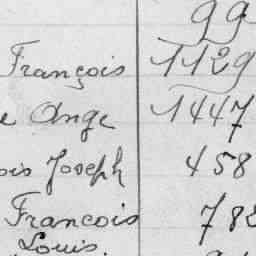 99
François 1129
e Ange 1447
ois Joseph 458
François 782
Louis.